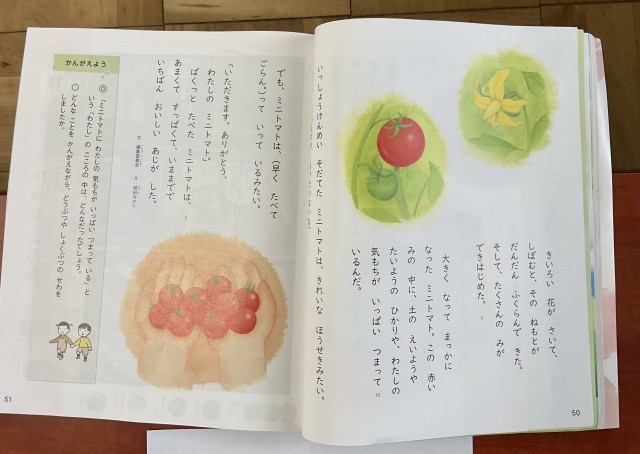 きいろい 花が さいて、
しぼむと、その ねもとが
だんだん ふくらんで きた。
そして、たくさんの みが
できはじめた。
5
大きく なって まっかに
なった ミニトマト。この 赤い
みの 中に、土の えいようや
たいようの ひかりや、わたしの
気もちが いっぱい つまって
10
いるんだ。
50
いっしょうけんめい そだてた ミニトマトは、きれいな ほうせきみたい。
でも、ミニトマトは、「早く たべて
ごらん。」って いって いるみたい。
「いただきます。ありがとう、
わたしの ミニトマト。」
ぱくっと たべた ミニトマトは、
5
あまくて すっぱくて、いままでで
いちばん おいしい あじが した。
文 編集委員会
かんがえよう
◎「ミニトマトに わたしの 気もちが いっぱい つまって いる」と
いう 「わたし」の こころの 中は、どんなだったでしょう。
○どんな ことを かんがえながら、どうぶつや しょくぶつの せわを
しましたか。
51